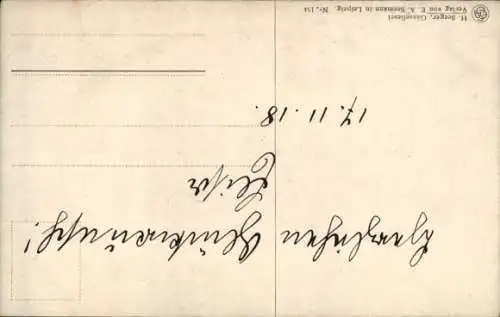 Herzlichen Glückwunsch!
17. 11. 18.
H. Seeger, Gänseliesel
Verlag von E. A. Seemann in Leipzig. Nr. 154